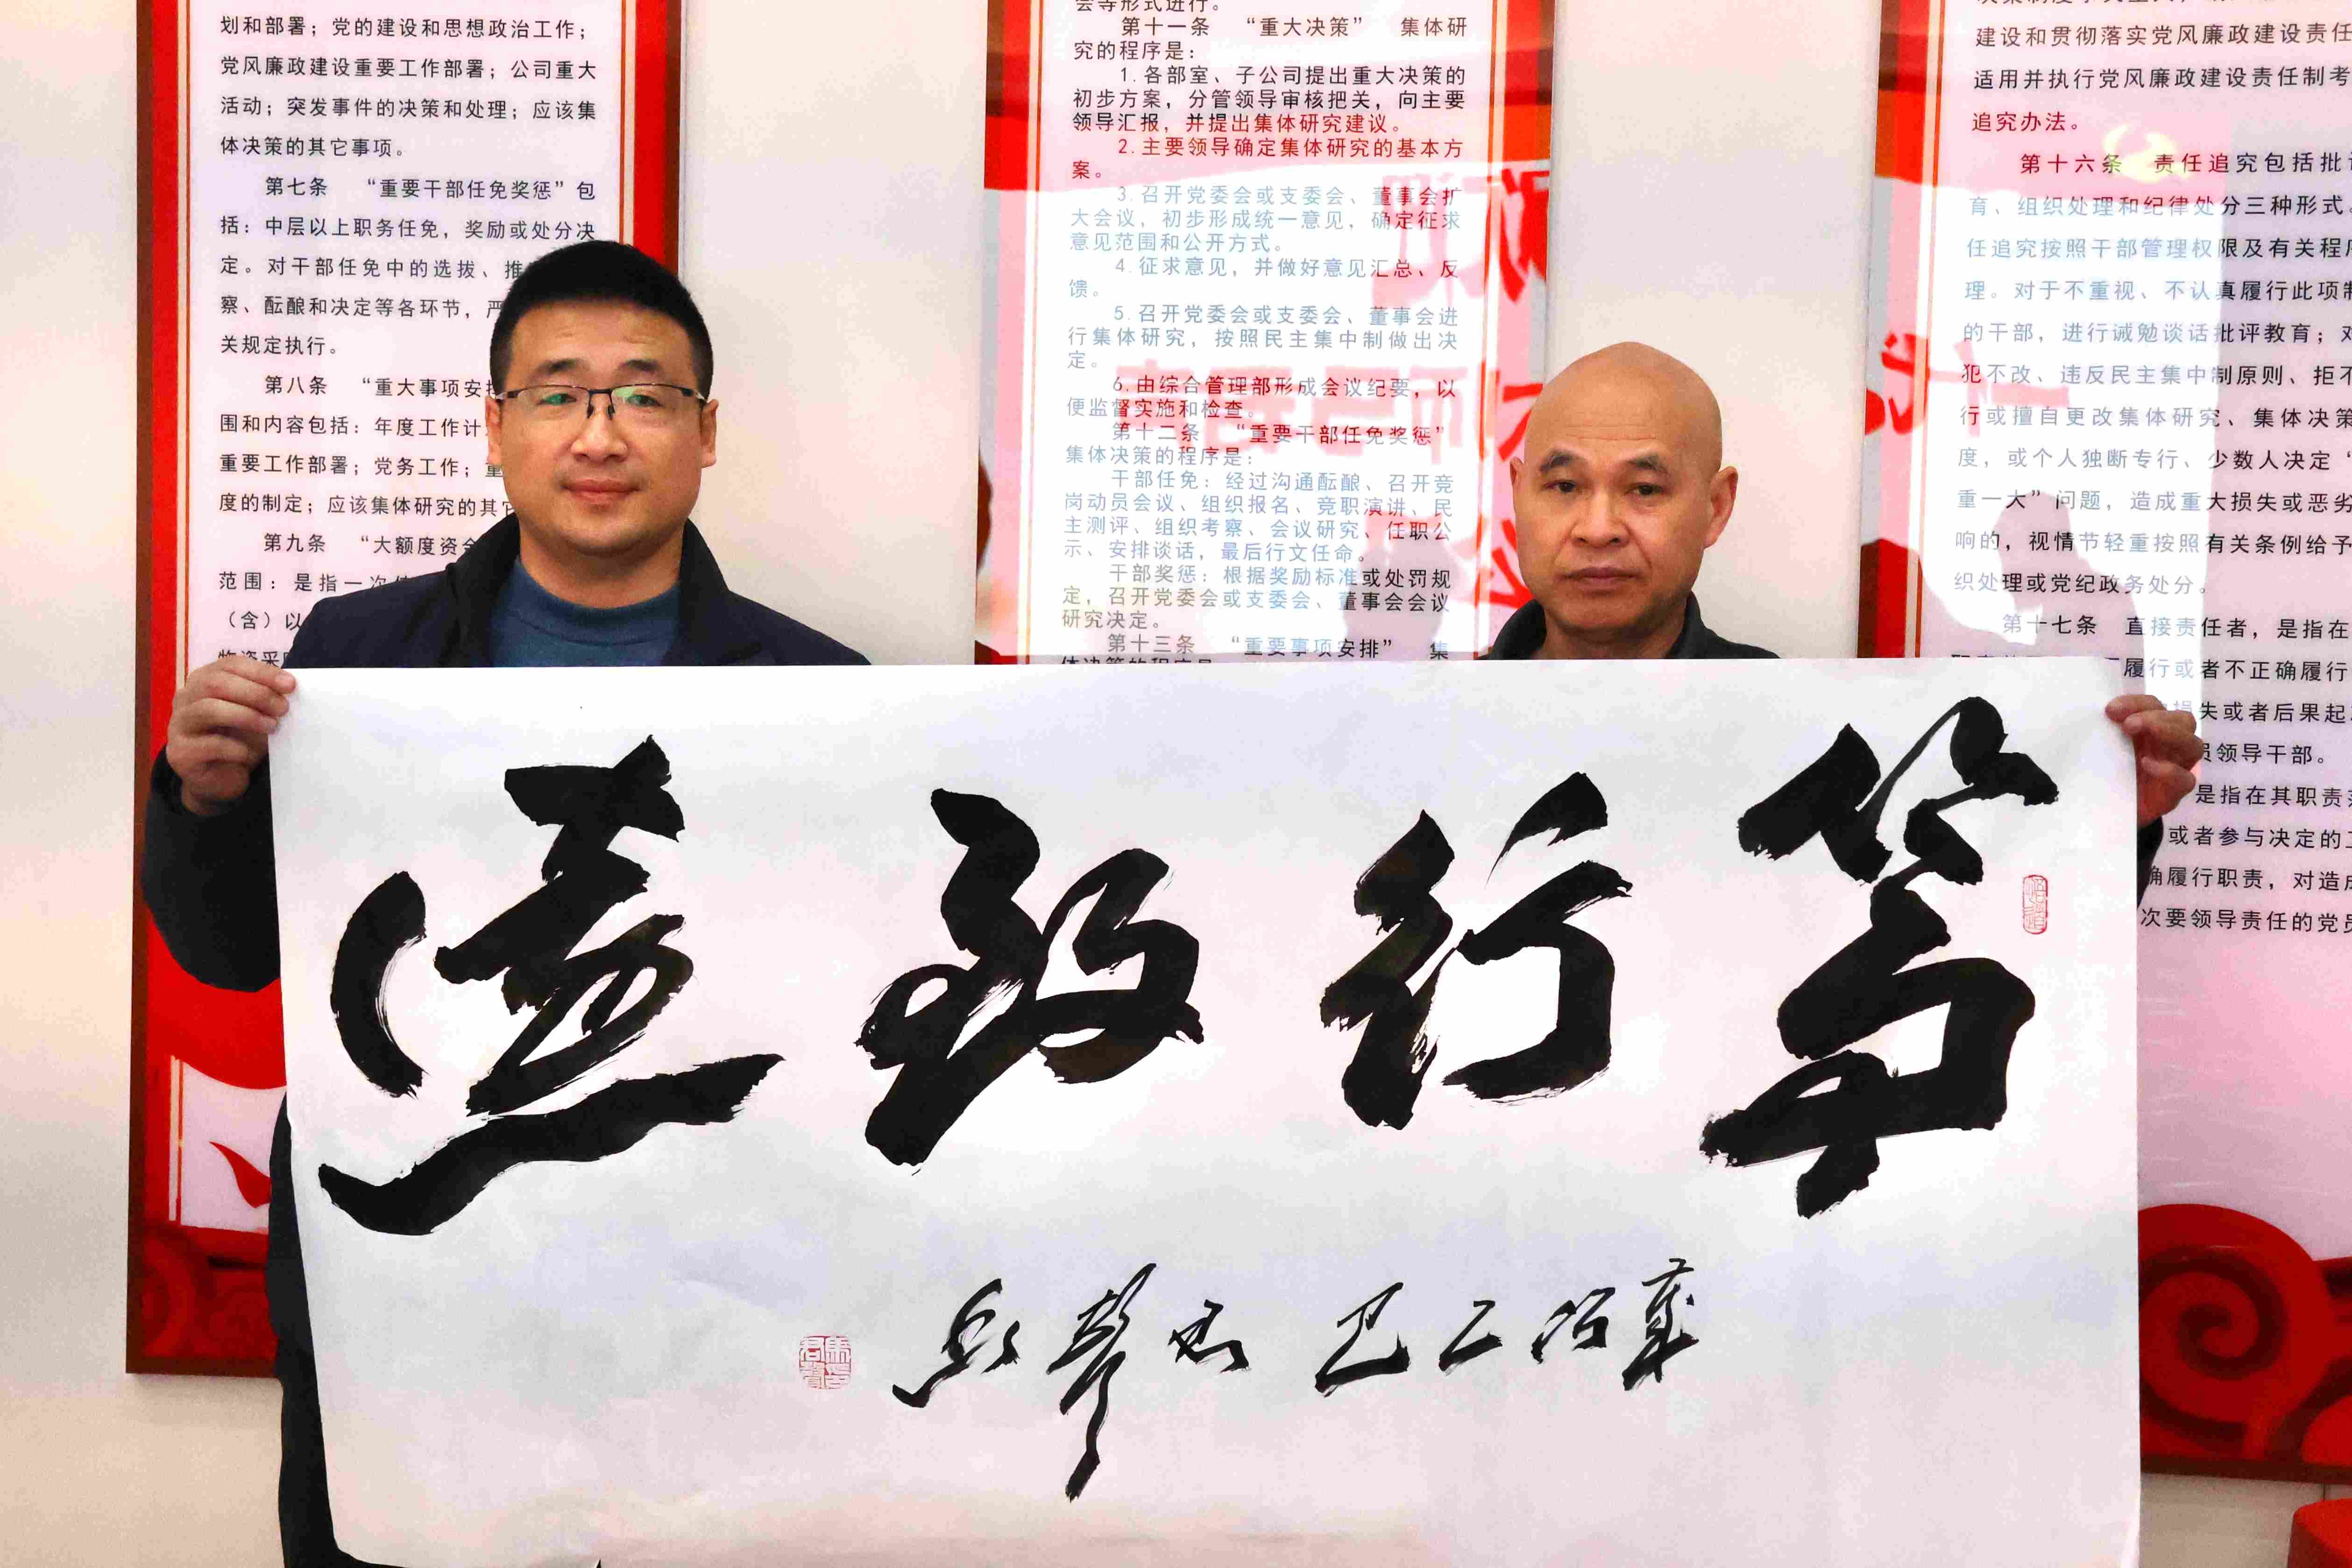 划和部署；党的建设和思想政治工作；
党风廉政建设重要工作部署；公司重大
活动；突发事件的决策和处理；应该集
体决策的其它事项。
第七条 “重要干部任免奖惩”包
括：中层以上职务任免，奖励或处分决
定。对干部任免中的选拔、推
察、酝酿和决定等各环节，严
关规定执行。
第八条 “重大事项安排
围和内容包括：年度工作计
重要工作部署；党务工作；重
度的制定；应该集体研究的其它
第九条 “大额度资金
范围：是指一次
（含）以
物资采
会等形式进行。
第十一条 “重大决策” 集体研
究的程序是：
1.各部室、子公司提出重大决策的
初步方案，分管领导审核把关，向主要
领导汇报，并提出集体研究建议。
2.主要领导确定集体研究的基本方
案。
3.召开党委会或支委会、董事会扩
大会议，初步形成统一意见，确定征求
意见范围和公开方式。
4.征求意见，并做好意见汇总、反
馈。
5.召开党委会或支委会、董事会进
行集体研究，按照民主集中制做出决
定。
6.由综合管理部形成会议纪要，以
便监督实施和检查。
第十二条 “重要干部任免奖惩”
集体决策的程序是：
干部任免：经过沟通酝酿、召开竞
岗动员会议、组织报名、竞职演讲、民
主测评、组织考察、会议研究、任职公
示、安排谈话，最后行文任命。
干部奖惩：根据奖励标准或处罚规
定，召开党委会或支委会、董事会会议
研究决定。
第十三条 “重要事项安排” 集
体决策的程序是
建设和贯彻落实党风廉政建设责任
适用并执行党风廉政建设责任制考
追究办法。
第十六条 责任追究包括批
育、组织处理和纪律处分三种形式。
任追究按照干部管理权限及有关程序
理。对于不重视、不认真履行此项制
的干部，进行诫勉谈话批评教育；对
犯不改、违反民主集中制原则、拒不
行或擅自更改集体研究、集体决策
度，或个人独断专行、少数人决定“
重一大”问题，造成重大损失或恶劣
响的，视情节轻重按照有关条例给予
织处理或党纪政务处分。
第十七条 直接责任者，是指在
履行或者不正确履行
损失或者后果起
员领导干部。
是指在其职责
或者参与决定的工
确履行职责，对造成
次要领导责任的党员
笃行致远